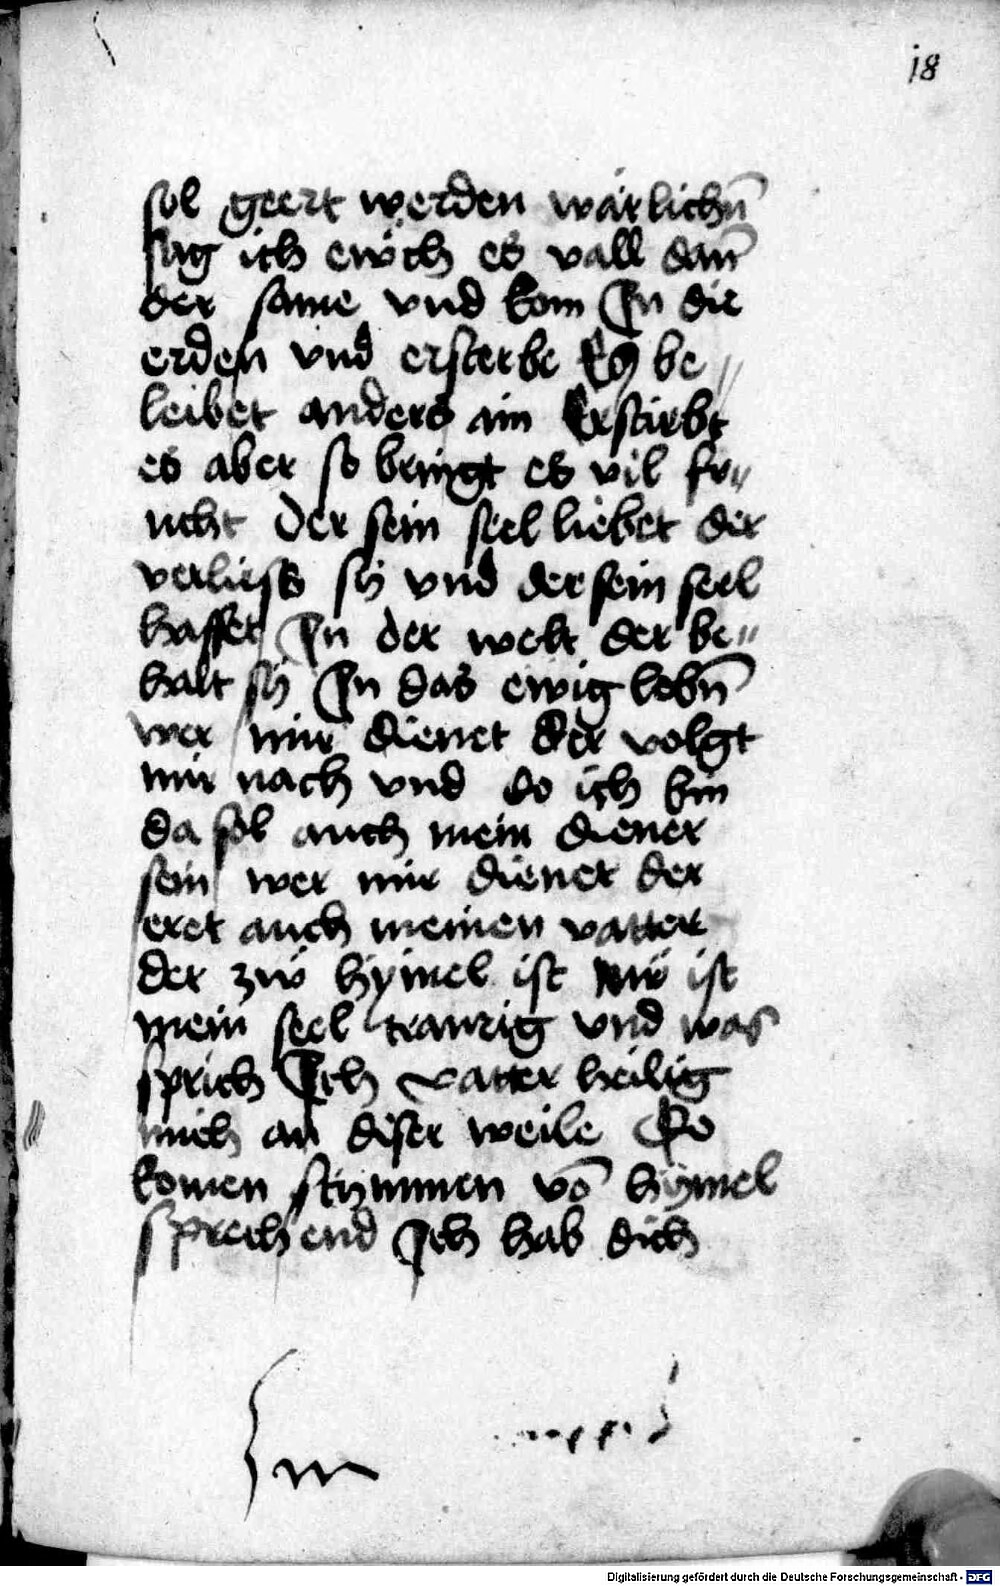 18
sol geert werden wärlichn̄
sag ich ewch es vall dan̄
der same vnd kom In die
erden vnd ersterbe Es be〃
leibet anders ain Erstirbt
es aber so bringt es vil fr〃
ucht Der sein seel liebet der
verliess sÿ vnd der sein seel
hasset In der welt der be〃
halt sÿ In das ewig lebn̄
wer mir dienet der volgt
mir nach vnd do ich bin
da sol auch mein diener
sein wer mir dienet der
eret auch meinen vatter
der zw hymel ist Nw ist
mein seel traurig vnd was
sprich Ich vatter heilig
mich an diser weile Do
komen stymmen vō hÿmel
sprechend Ich hab dich
Digitalisierung gefördert durch die Deutsche Forschungsgemeinschaft - DFG